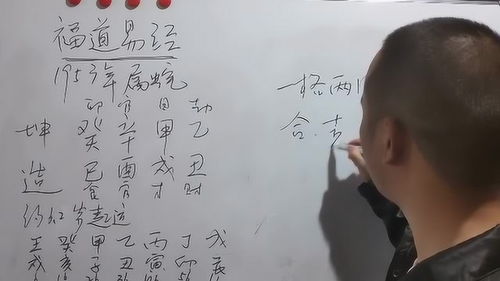 福道易经
1953年属蛇
印 官 日 劫
坤 癸 辛 甲 乙
造 巳 酉 戌 丑
食 官 才 财
岁起运
壬 癸 甲 乙 丙 丁 戊
戌 亥 子 丑 寅 卯 辰
一格两
合.